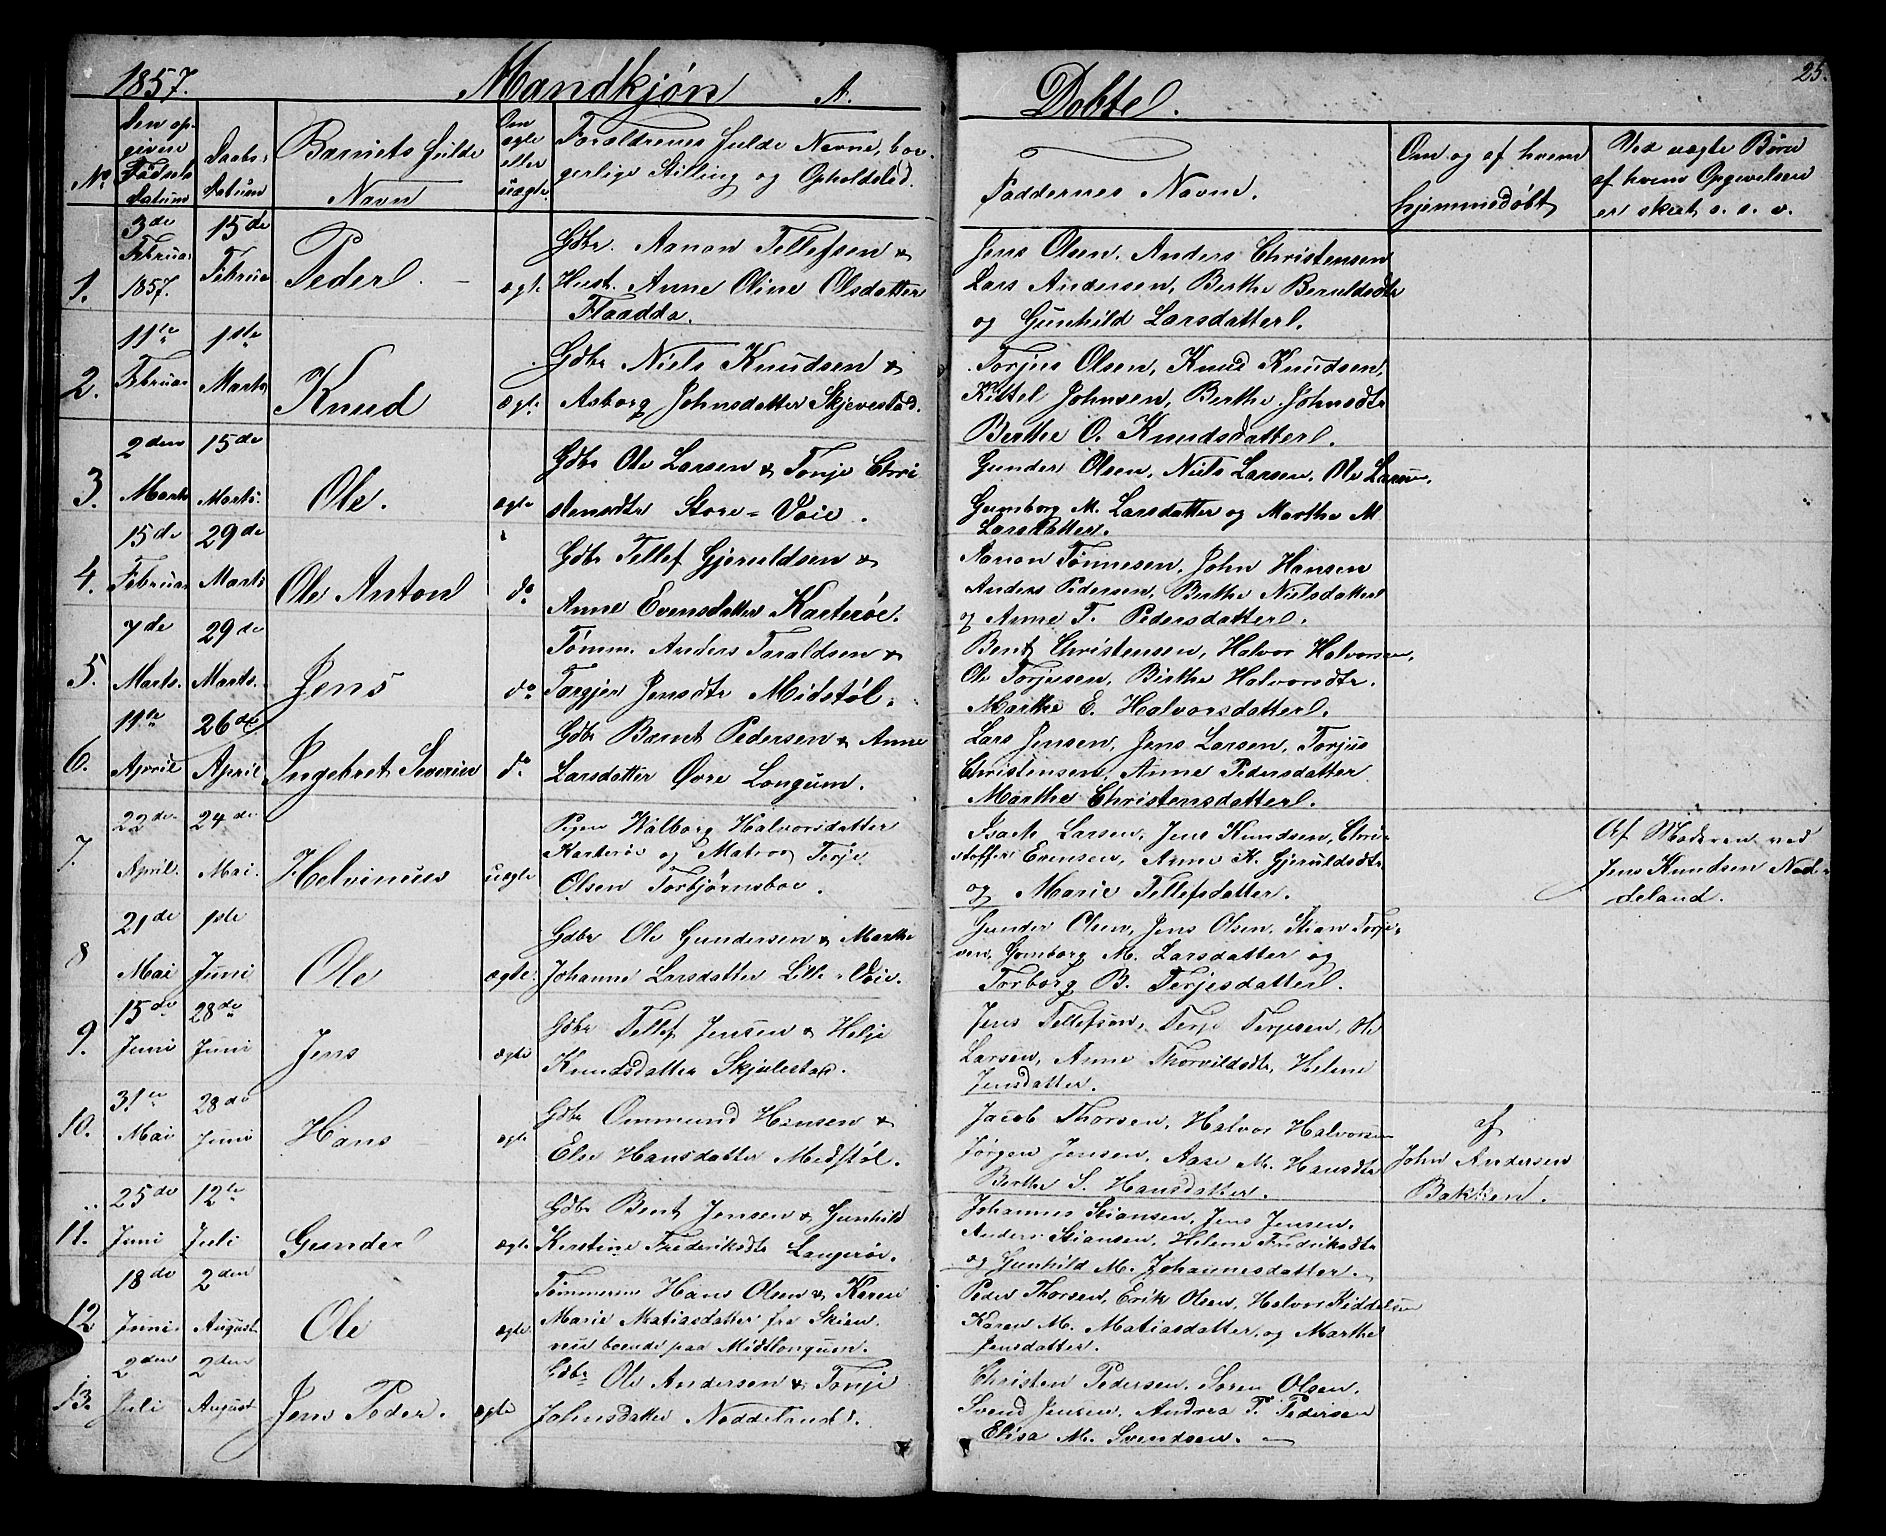 1857. Mandkjøn A. Døbte. 25.
No
den opgivne Fødsels Datum
Daabs Datum
Barnets fulde Navn
Om ægte eller uægte.
Forældrenes fulde Navne, borgerlige Stilling og Opholdsted.
Faddernes Navne.
Om og af hvem hjemmedøbt
Ved uægte Børn af hvem Opgivelsen er skeet o. s. v.
1. 3de Februar 1857. 15de Februar Peder. ægte
Gdbr. Aanon Tellefsen &
Hust. Anne Oline Olsdatter
Flaadda.
Jens Olsen, Anders Christensen
Lars Andersen, Berthe Beruldsdtr
og Gunhild Larsdatter.
2. 11te Februar 1ste Marts Knud ægte
Gdbr Niels Knudsen &
Asborg Johnsdatter Skjevestad.
Torjus Olsen, Knud Knudsen,
Kittel Johnsen, Berthe Johnsdtr
Berthe O. Knudsdatter.
3. 2den Marts 15de Marts. Ole. ægte
Gdbr Ole Larsen & Tonje Chri
stensdtr Store-Voie.
Gunder Olsen, Niels Larsen, Ole Larsen,
Gumborg M. Larsdatter og Marthe M
Larsdatter.
4. 15de Februar 29de Marts Ole Anton do
Gdbr Tellef Gjeruldsen &
Anne Evensdatter Karterøe.
Aanon Tønnesen, John Hansen
Anders Pedersen, Berthe Nielsdatter
og Anne T. Pedersdatter.
5. 7de Marts. 29de Marts. Jens do
Tømm. Anders Taraldsen &
Targjer Jensdtr Midstøl.
Bent Christensen, Halvor Halvorsen,
Ole Torjusen, Birthe Halvorsdtr.
Marthe E. Halvorsdatter.
6. 11te April 26de April Ingebret Severin do
Gdbr Bernt Pedersen & Anne
Larsdatter Øvre Longum.
Lars Jensen, Jens Larsen, Torjus
Christensen, Anne Pedersdatter
Marthe Christensdatter.
7. 22de April. 24de Mai. Helvinius uægte
Pigen Walborg Halvorsdatter
Karterøe og Matros Terje
Olsen Torbjørnsboe.
Isach Larsen, Jens Knudsen, Chri-
stoffer Evensen, Anne K. Gjeruldsdtr
og Marie Tellefsdatter.
Af Moderen ved
Jens Knudsen Ned-
deland.
8 21de Mai 1ste Juni Ole ægte.
Gdbr Ole Gundersen & Marthe
Johanne Larsdatter Lille-Voie.
Gunder Olsen, Jens Olsen, Stian Torje-
sen, Gomborg M. Larsdatter og
Torborg B. Terjesdatter.
9. 15de Juni 28de Juni Jens ægte
Gdbr Tellef Jensen & Helje
Knudsdatter Skjulestad.
Jens Tellefsen, Terje Terjesen, Ole
Larsen, Anne Thorvildsdtr, Helene
Jensdatter.
10. 31te Mai 28de Juni Hans ægte
Gdbr Ommund Hansen &
Else Hansdatter Medstøl.
Jacob Thorsen, Halvor Halvorsen
Jørgen Jensen, Aase M. Hansdtr
Berthe S. Hansdatter.
af
John Andersen
Bakken.
11. 25de Juni 12te Juli Gunder ægte
Gdbr Bent Jensen & Gunhild
Kirstine Frederiksdtr Langerøe.
Johannes Stiansen, Jens Jensen.
Anders Stiansen, Helene Fredriksdtr
og Gunhild M. Johannesdatter.
12 18de Juni 2den August Ole ægte
Tømmerm Hans Olsen & Karen
Marie Matiasdatter fra Skien.
nu boende paa Midtlongum.
Peder Thorsen, Erik Olsen, Halvor Kiddelsen
Karen M. Matiasdatter, og Marthe
Jensdatter.
13. 2den Juli 2den August Jens Peder. ægte
Gdbr Ole Andersen & Tonje
Johnsdatter Neddeland.
Christen Pedersen, Søren Olsen,
Svend Jensen, Andrea P. Pedersen
Elisa M. Svendsen.